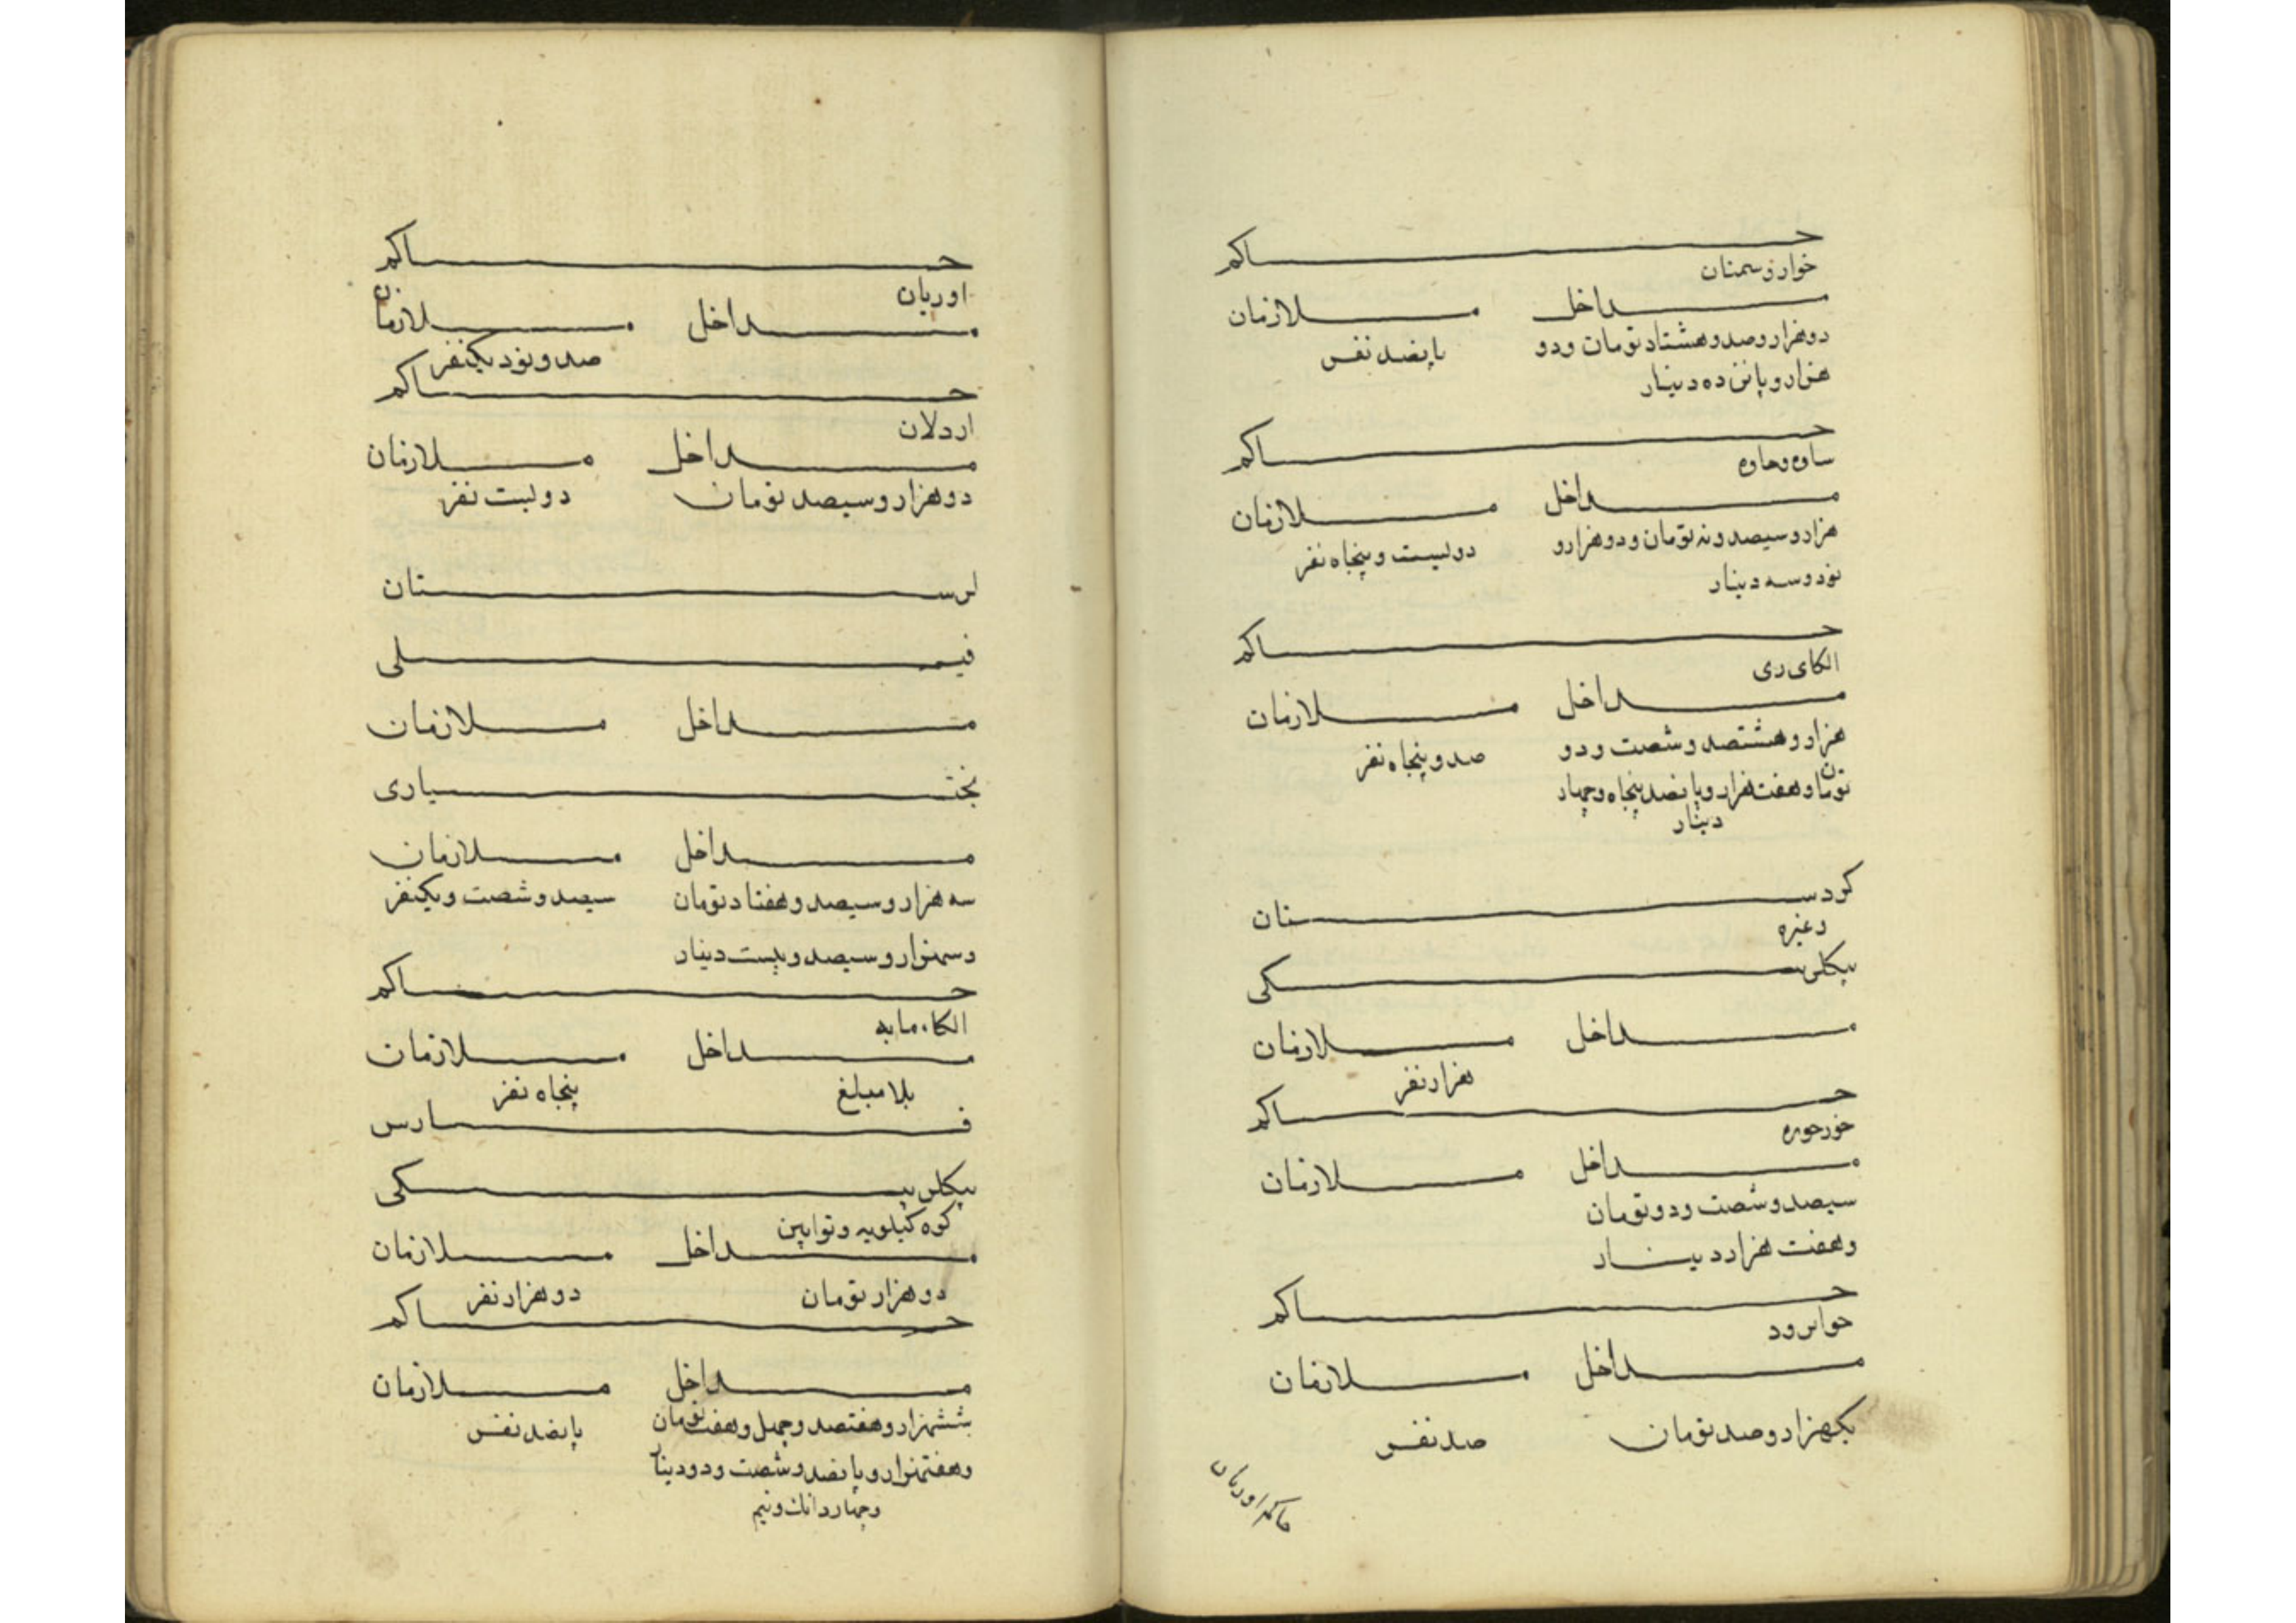 حاکم
خوار و سمنان
مداخل ملازمان
دو هزار و صد و هشتاد تومان و دو پانصد نفس
هزار و پانزده دینار
حاکم
ساوه و
مداخل ملازمان
هزار و سیصد و نه تومان و دو هزار و دولیست و پنجاه نفر
نود و سه دینار
حاکم
الکای ری
مداخل ملازمان
هزار و هشتصد و شصت و دو صد و پنجاه نفر
تومان و هفت هزار و پانصد پنجاه و چهار
دینار
کردستان
و غیره
بیکلربیکی
مداخل ملازمان
هزار نفر
حاکم
خورخوره
مداخل ملازمان
سیصد و شصت و دو تومان
و هفت هزار دینار
حاکم
جوانرود
مداخل ملازمان
یکهزار و صد تومان صد نفس
حاکم اوریان
حاکم
اوریان
مداخل ملازمان
صد و نود یکنفر
حاکم
اردلان
مداخل ملازمان
دو هزار و سیصد تومان دولیست نفر
لرستان
فیلی
مداخل ملازمان
بختیاری
مداخل ملازمان
سه هزار و سیصد و هفتاد تومان سیصد و شصت و یکنفر
و سهزار و سیصد و بیست دینار
حاکم
مداخل ملازمان
بلا مبلغ پنجاه نفر
فارس
بیکلربیکی
کوه کیلویه و توابین
مداخل ملازمان
دو هزار تومان دو هزار نفر
حاکم
مداخل ملازمان
ششهزار و هفتصد و چهل و هفت تومان پانصد نفس
و هفتهزار و پانصد و شصت و دو دینار
و چهار دانك و نیم